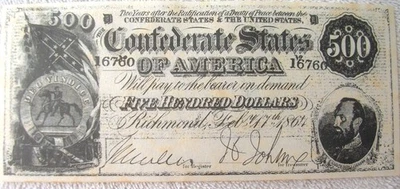 500
Two Years after the Ratification of a Treaty of Peace between the
CONFEDERATE STATES & THE UNITED STATES
Confederate States
OF AMERICA
500
16760
16760
Will pay to the bearer on demand
FIVE HUNDRED DOLLARS
Richmond, Feb. 17th, 1864
for Register
for Treasurer